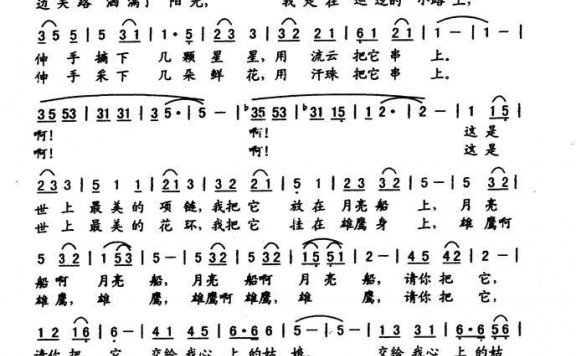 边 笑 路 洒 满 了 阳 光, 我 是 在 边 的 小 路 上,
3 5 5 | 5 3 1 | 1 · 5 | 2 3 2 | 3 5 5 | 5 3 1 2 | 1 — | 1 — |
伸 手 摘 下 几 颗 星 星, 用 流 云 把 它 串 上。
伸 手 采 下 几 朵 鲜 花, 用 汗 珠 把 它 串 上。
35 53 | 31 31 | 3 5 · | 5 — | ♭35 53 | ♭31 15 | 1 2 · | 2 — | 1 1 5 |
啊! 啊! 这 是
啊! 啊! 这 是
2 2 3 | 5 1 | 1 2 1 | 3 3 2 | 1 · 2 | 3 2 | 5 — | 5 3 2 |
世 上 最 美 的 项 链, 我 把 它 放 在 月 亮 船 上, 月 亮
世 上 最 美 的 花 环, 我 把 它 挂 在 雄 鹰 身 上, 雄 鹰 啊
5 3 2 | 1 5 3 | 5 — | 5 3 2 | 5 3 2 | 1 5 5 1 | 5 — | 2 4 5 | 4 2 |
船 啊 月 亮 船, 月 亮 船 啊 月 亮 船, 请 你 把 它,
雄 鹰, 雄 鹰, 雄 鹰 啊 雄 鹰, 雄 鹰, 请 你 把 它,
1 2 | 1 6 | 5 — | 5 · 6 | 5 2 | 3 · 2 | 1 — | 5 1 | 3 2 | 6 · 6 | 5 6 |
请 你 把 它 交 给 我 心 上 的 姑 娘, 交 给 我 心 上 的 姑